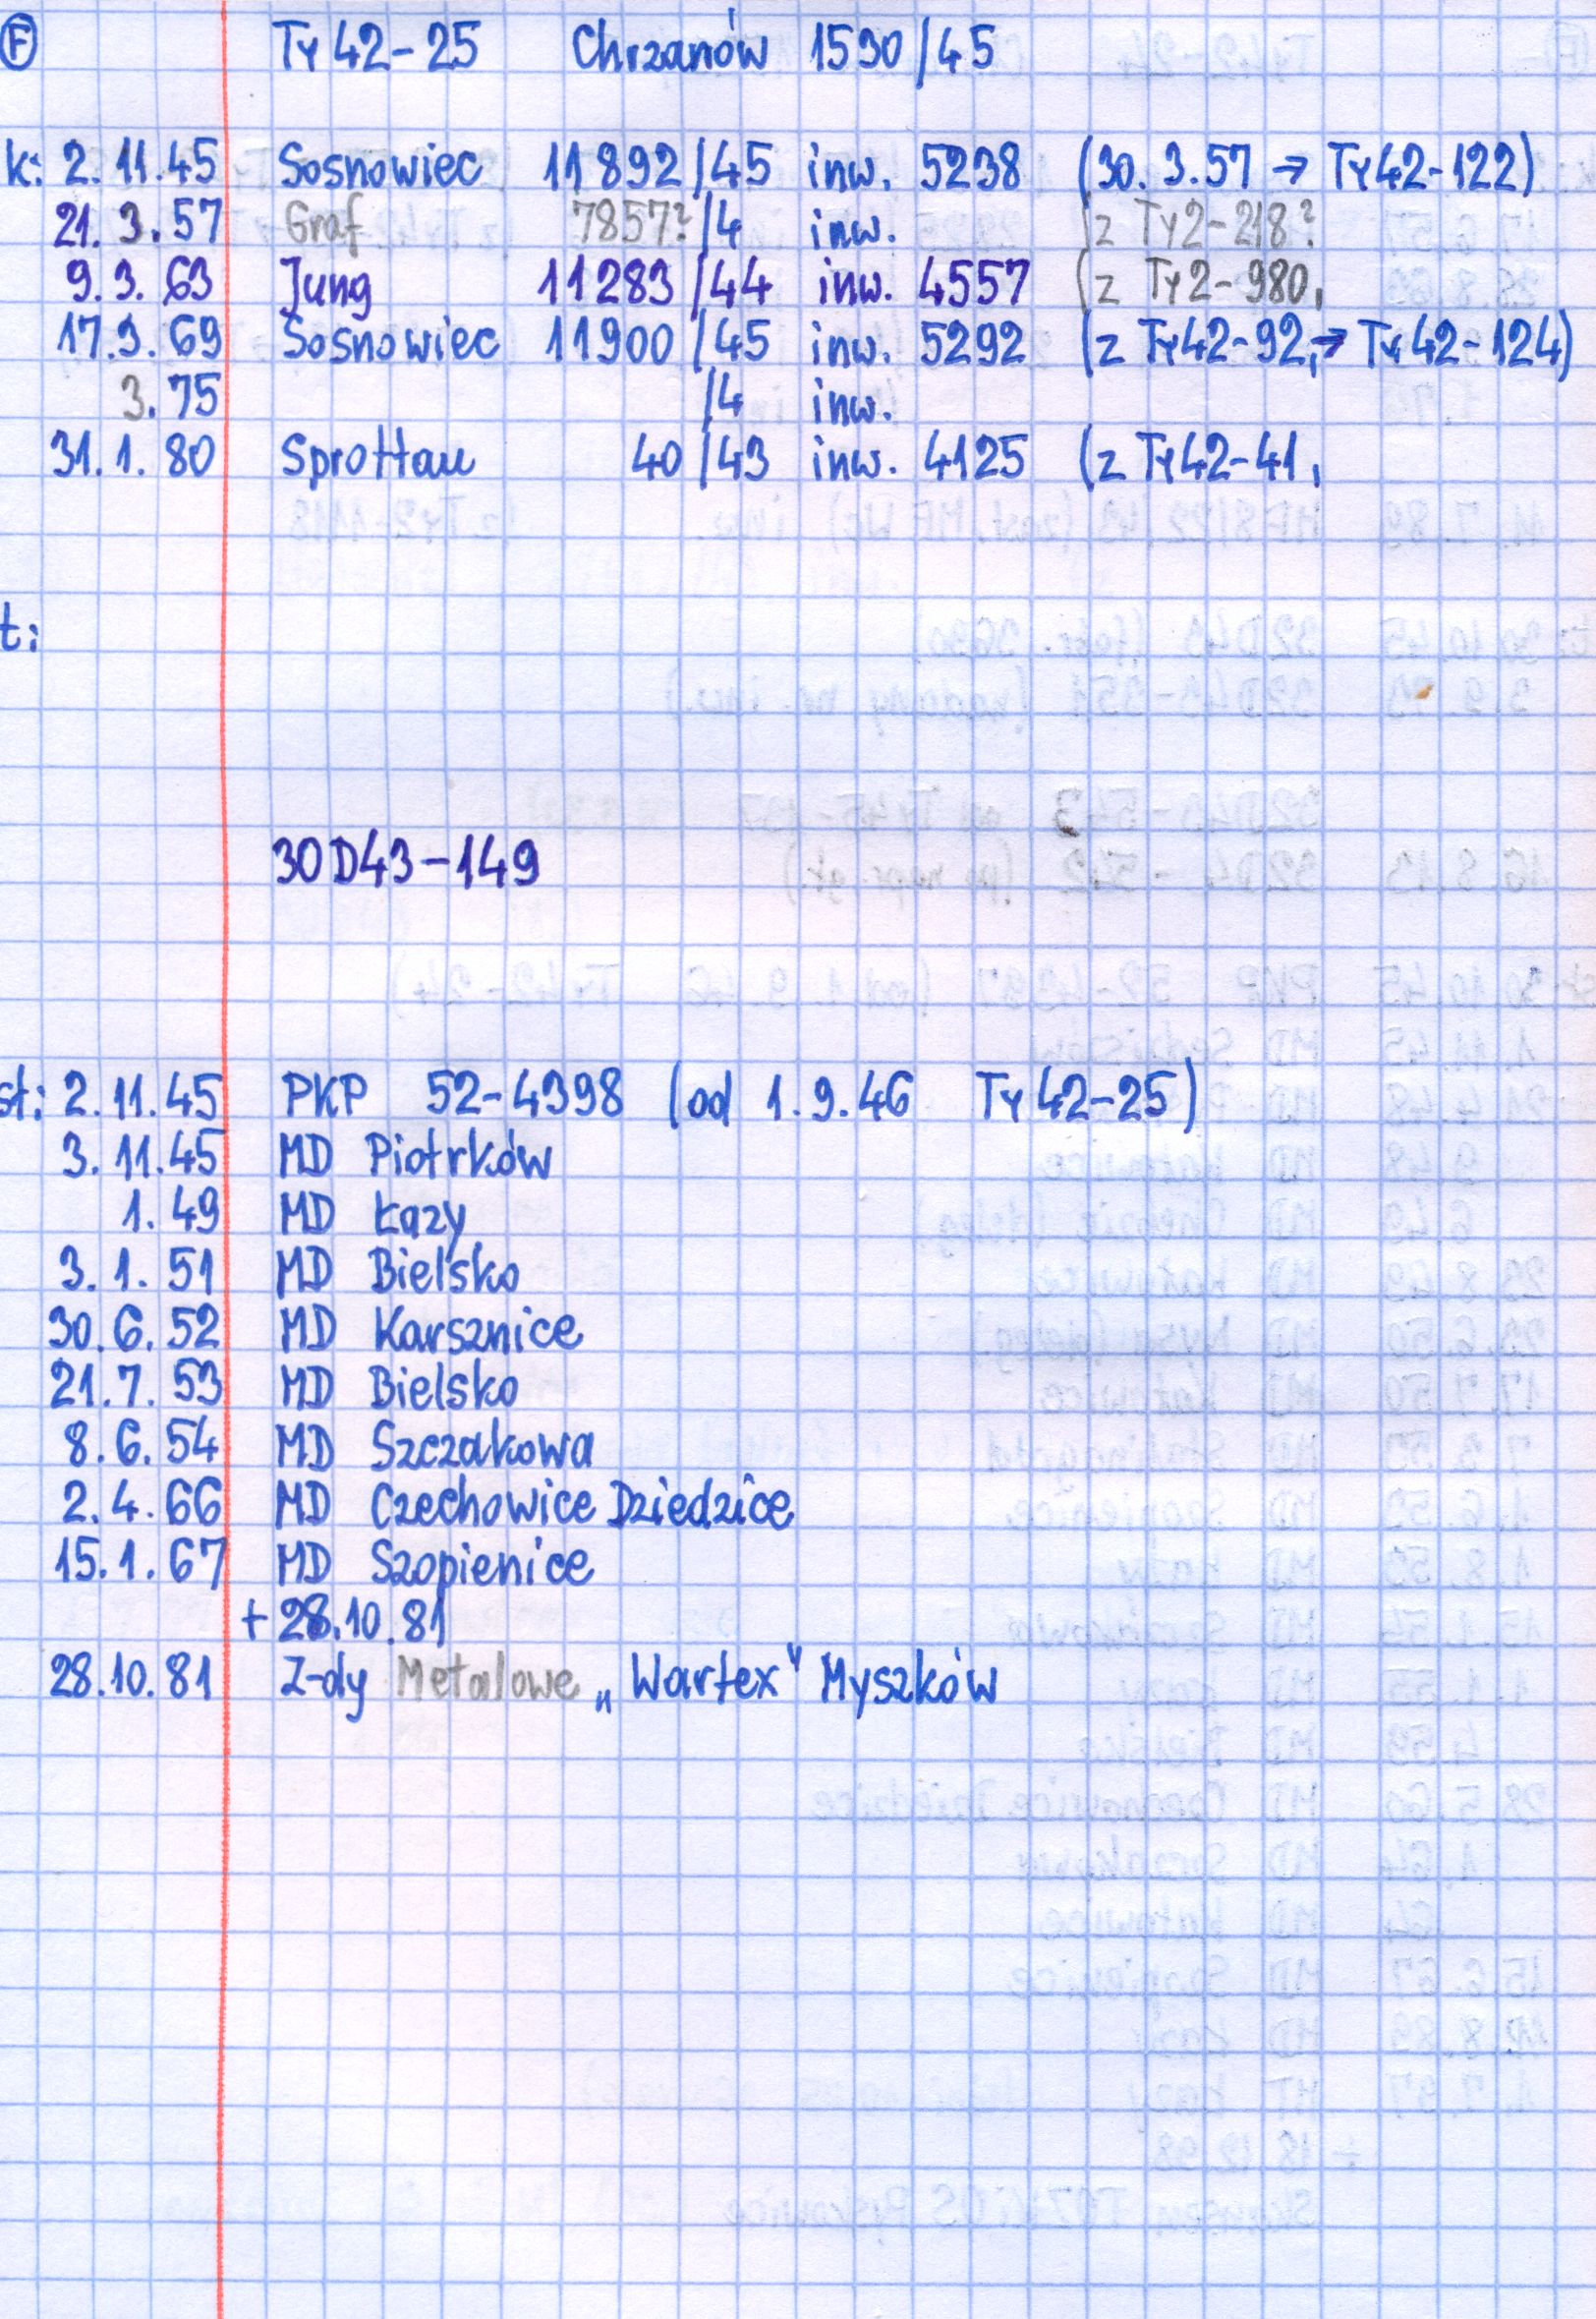 F Ty42-25 Chrzanów 1530/45
k: 2.11.45 Sosnowiec 11892/45 inw. 5238 (30.3.57 → Ty42-122)
21.3.57 Graf 7857?/4 inw. (z Ty2-218?
9.3.63 Jung 11283/44 inw. 4557 (z Ty2-980,
17.3.69 Sosnowiec 11900/45 inw. 5292 (z Ty42-92, → Ty42-124)
3.75 /4 inw.
31.1.80 Sprottau 40/43 inw. 4125 (z Ty42-41,
t:
30D43-149
st: 2.11.45 PKP 52-4398 (od 1.9.46 Ty42-25)
3.11.45 MD Piotrków
1.49 MD Łazy
3.1.51 MD Bielsko
30.6.52 MD Karsznice
21.7.53 MD Bielsko
8.6.54 MD Szczakowa
2.4.66 MD Czechowice Dziedzice
15.1.67 MD Szopienice
+ 28.10.81
28.10.81 Z-dy Metalowe „Wartex" Myszków